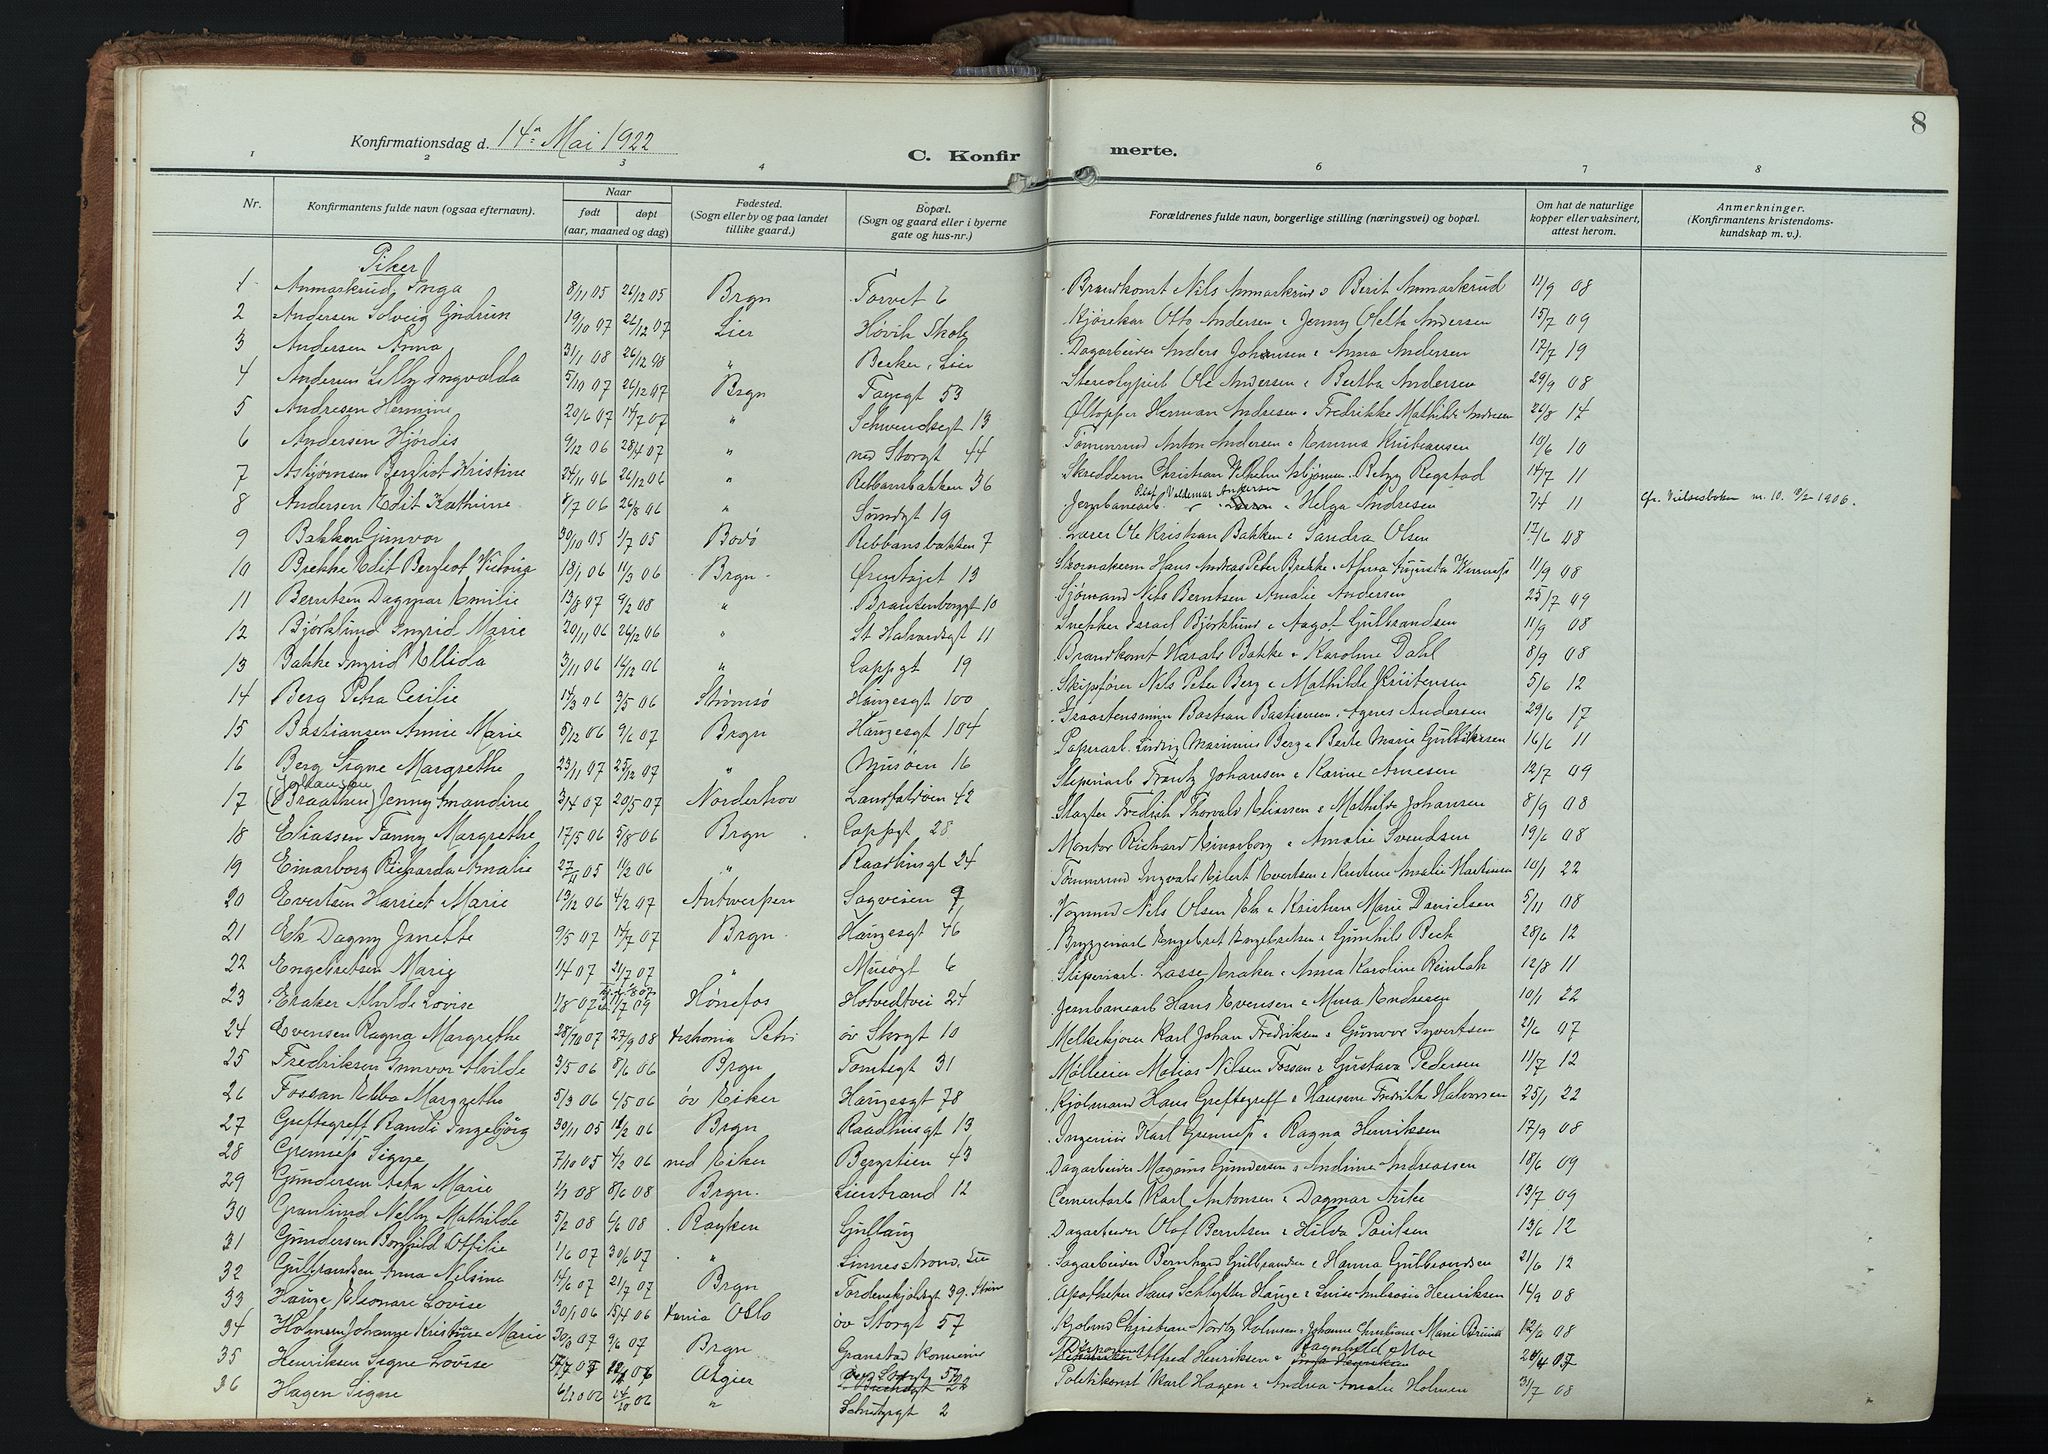 8
Konfirmationsdag d. 14de Mai 1922
C. Konfirmerte.
1 2 3 4 6 7 8
Nr. Konfirmantens fulde navn (ogsaa efternavn). Naar født døpt (aar, maaned og dag) Fødested. (Sogn eller by og paa landet tillike gaard.) Bopæl. (Sogn og gaard eller i byerne gate og hus-nr.) Forældrenes fulde navn, borgerlige stilling (næringsvei) og bopæl. Om hat de naturlige kopper eller vaksinert, attest herom. Anmerkninger. (Konfirmantens kristendoms-kundskap m. v.).
Piker
1 Anmarkrud, Inga 8/11 05 26/12 05 Brgn Torvet 6 Brandkonst Nils Anmarkrud o Berit Anmarkrud 11/9 08
2 Andersen Solveig Gudrun 19/10 07 26/12 07 Lier Høvik Skole Kjørekar Otto Andersen o Jenny Oletta Andersen 15/7 09
3 Andersen Anna 31/1 08 26/12 08 " Becker, Lier Dagarbeider Anders Johansen o Anna Andersen 17/7 19
4 Andersen Lilly Ingvalda 5/10 07 26/12 07 Brgn Fayegt 53 Stereotypist Ole Andersen o Bertha Andersen 29/9 08
5 Andresen Hermine 20/6 07 14/7 07 " Schwendsgt 13 Øltapper Herman Andresen o Fredrikke Mathilde Andresen 26/8 14
6 Andersen Hjørdis 9/12 06 28/4 07 " ned Storgt 44 Tømmermd Anton Andersen o Emma Kristiansen 10/6 10
7 Asbjørnsen Bergliot Kristine 24/11 06 26/12 06 " Ribbansbakken 36 Skreddersv Christian Vilhelm Asbjørnsen o Betzy Regstad 14/7 11
8 Andersen Edit Kathrine 8/7 06 26/8 06 " Sundgt 19 Jernbanearb. Olaf Valdemar Andersen o Helga Andresen 7/4 11 Cfr. Vielsesboken nr. 10. 1906.
9 Bakken Gunvor 30/10 05 1/7 05 Bovø Ribbansbakken 7 Lærer Ole Kristian Bakken o Sandra Olsen 17/6 08
10 Brekke Edit Bergliot Victoria 18/1 06 11/3 06 Brgn Ørentøjet 13 Skomakerm Hans Andreas Peter Brekke o Anna Augusta 11/9 08
11 Berntsen Dagmar Emilie 13/8 07 9/2 08 " Brantenborggt 10 Sjømand Nils Berntsen o Amalie Andersen 25/7 09
12 Bjørklund Ingrid Marie 20/11 06 26/12 06 " St Halvardsgt 11 Snekker Israel Bjørklund o Aagot Gulbrandsen 11/9 08
13 Bakke Ingrid Ellida 3/11 06 16/12 06 " Cappgt 19 Brandkonst Harald Bakke o Karoline Dahl 8/9 08
14 Berg Petra Cecilie 14/3 06 3/5 06 Strømsø Haugesgt 100 Skipsfører Nils Peter Berg o Mathilde Kristensen 5/6 12
15 Bastiansen Annie Marie 5/12 06 9/6 07 Brgn Haugesgt 104 Graastensmin Bastian Bastiansen o Agnes Andersen 29/6 17
16 Berg Signe Margrethe 23/11 07 25/12 07 " Musøen 16 Papirarb. Ludvig Marinius Berg o Berte Marie Gulliksen 16/6 11
17 Johansen (Braathen) Jenny Amandine 3/4 07 20/5 07 Norderhov Landfaldøen 42 Sliperiarb Frantz Johansen o Karine Arnesen 12/7 09
18 Eliassen Fanny Margrethe 17/5 06 5/8 06 Brgn Cappgt 28 Slagter Fredrik Thorvald Eliassen o Mathilde Johansen 8/9 08
19 Einarborg Richarda Amalie 27/11 05 11/2 06 " Raadhusgt 24 Montør Richard Einarborg o Amalie Svendsen 19/6 08
20 Evertsen Harriet Marie 13/12 06 4/2 07 Antwerpen Sagveien 9 Tømmermd Ingvald Eilert Evertsen o Kristine Amalie Martinsen 10/1 22
21 Ek Dagny Janette 9/5 07 14/7 07 Brgn Haugesgt 46 Vognmd Nils Olsen Ek o Kristine Marie Danielsen 5/11 08
22 Engebretsen Marie 1/4 07 21/7 07 " Musøgt 6 Bryggeriarb Engebret Engebretsen o Gunhild Beck 28/6 12
23 Eraker Alvilde Lovise 1/8 07 Hønefos Hotvedtvei 24 Sliperiarb. Lasse Eraker o Anna Karoline Reinbak 12/8 11
24 Evensen Ragna Margrethe 28/10 07 27/9 08 Kristiania Petri øv Storgt 10 Jernbanearb Hans Evensen o Mina Andresen 10/1 22
25 Fredriksen Gunvor Alvilde 3/5 06 8/6 06 Brgn Tomtegt 31 Melkekjører Karl Johan Fredriksen o Gunvor Syvertsen 2/6 07
26 Fossan Ebba Margrethe 5/3 06 4/5 06 øv Eiker Haugesgt 78 Mølleeier Matias Nilsen Fossan o Gustava Pedersen 11/7 12
27 Greftegreff Randi Ingebjørg 30/11 05 18/2 06 Brgn Raadhusgt 13 Kjølmand Hans Greftegreff o Hansene Fredrikke Halvorsen 25/1 22
28 Grenness Signe 7/10 05 4/2 06 ned Eiker Bergstien 43 Ingeniør Karl Grenness o Ragna Henriksen 17/9 08
29 Gundersen Asta Marie 1/1 08 8/6 08 Brgn. Lienstrand 12 Dagarbeider Magnus Gundersen o Andrine Andreassen 18/6 09
30 Granlund Nelly Mathilde 5/2 08 6/6 08 Røyken Gullaug Cementarb Karl Antonsen o Dagmar Aske 13/7 09
31 Gundersen Borghild Ottilie 1/6 07 30/6 07 " Linnesstrand, Lier Dagarbeider Olaf Berntsen o Hilda Paulsen 13/6 12
32 Gulbrandsen Anna Nelsine 14/6 07 21/7 07 Brgn Tordenskjoldsgt 39. Strøm Sagarbeider Bernhard Gulbrandsen o Hanna Gulbrandsen 21/6 12
33 Hauge Eleonare Lovise 30/1 06 15/4 06 Kania Oslo øv Storgt 57 Apotheker Hans Schlytter Hauge o Luise Ambrosia Henriksen 14/9 08
34 Holmsen Johanne Kristiane Marie 30/3 07 9/6 07 Brgn Granstad Konnerud Kjølmd Christian Nordby Holmsen o Johanne Christiane Marie Bruun 12/6 08
35 Henriksen Signe Lovise Algier Alfred Henriksen o Ragnhild Moe 20/4 07
36 Hagen Signe 6/10 06 14/10 06 " Schultzgt 2 Politikonst Karl Hagen o Andrea Amalie Holmen 31/7 08